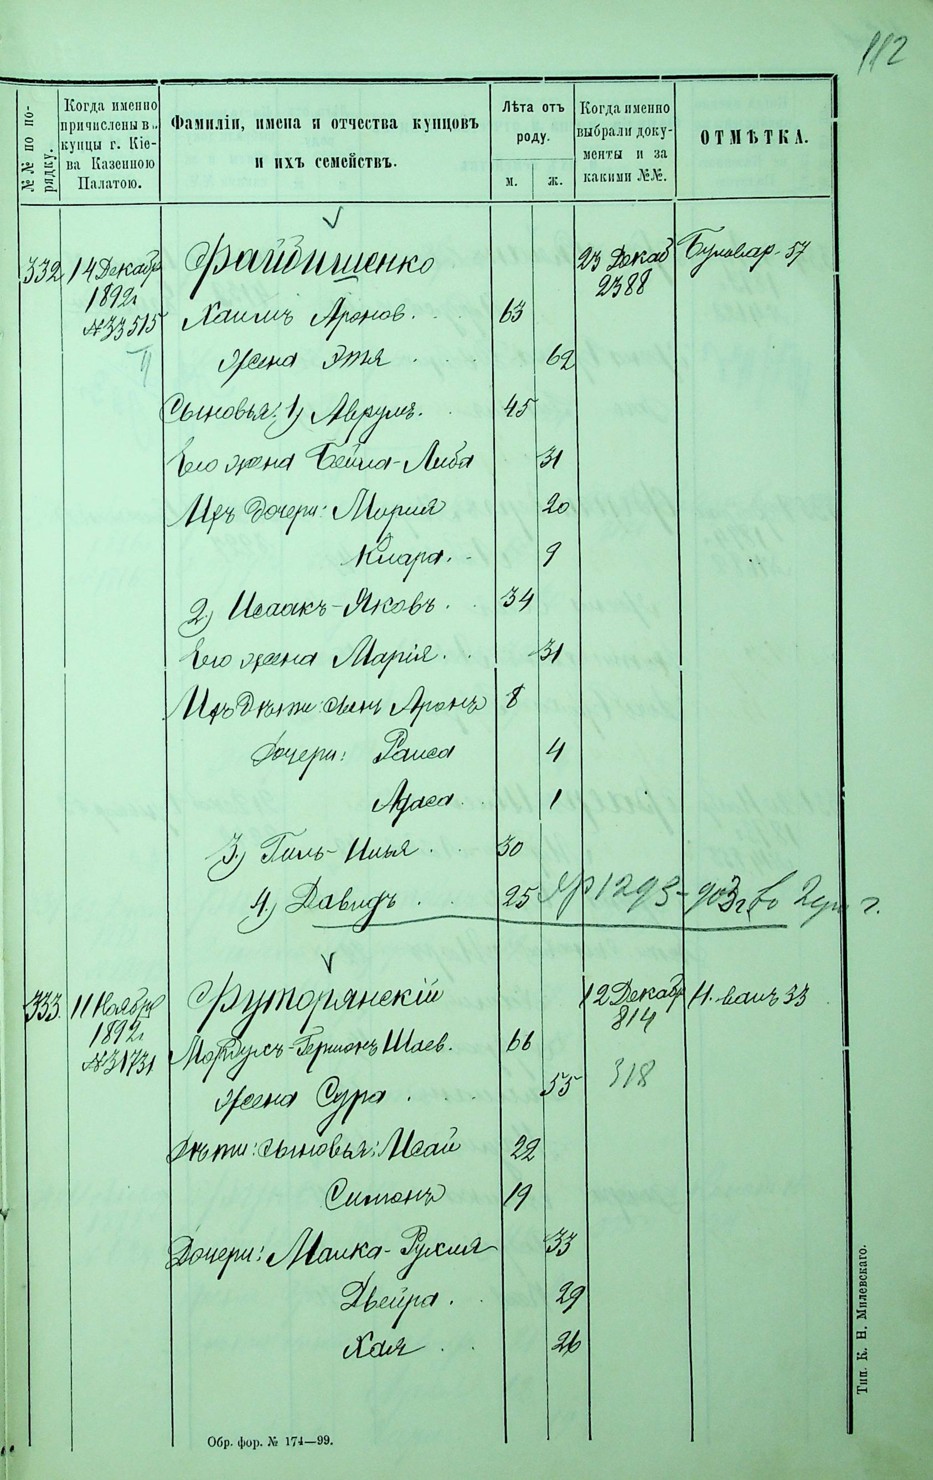 112
№№ по по-
рядку.
Когда именно
причислены в
купцы г. Кіе-
ва Казенною
Палатою.
Фамиліи, имена и отчества купцовъ
и ихъ семействъ.
Лѣта отъ
роду.
м. ж.
Когда именно
выбрали доку-
менты и за
какими №№.
ОТМѢТКА.
332 14 Декабр Файбишенко 23 Декаб Бульвар-57
1892г 2388
№33515 Хаимъ Аронов. 63
Жена Этя 62
Сыновья: 1) Аврумъ. 45
Его жена Бейла-Либа 31
Ихъ дочери: Мария 20
Клара. 9
2) Исаакъ-Яковъ. 34
Его жена Марія. 31
Ихъ дѣти: сын Аронъ 8
Дочери: Раиса 4
Адаса 1
3) Гиль-Илья 30
4) Давидъ 25 1293-903г во 2 г.
333. 11 Ноября Футорянскій 12 Декабр 33
1892г 814
№31731 Германъ Шаев. 66
Жена Сура 55 318
Дѣти: сыновья: Исай 22
Симонъ 19
Дочери: Малка-Рухля 33
Двейра. 29
Хая 26
Обр. фор. № 174—99.
Тип. К. Н. Милевскаго.